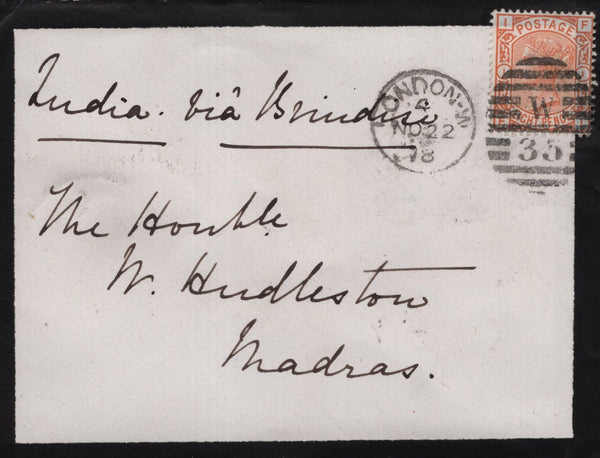 India. viâ Brindisi
The Honble
W. Hudleston
Madras.
LONDON-W
4
NO 22
78
I F
POSTAGE
W
35